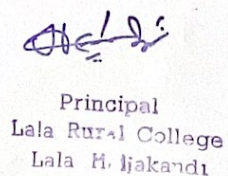 Principal
Lala Rural College
Lala H. ljakandi